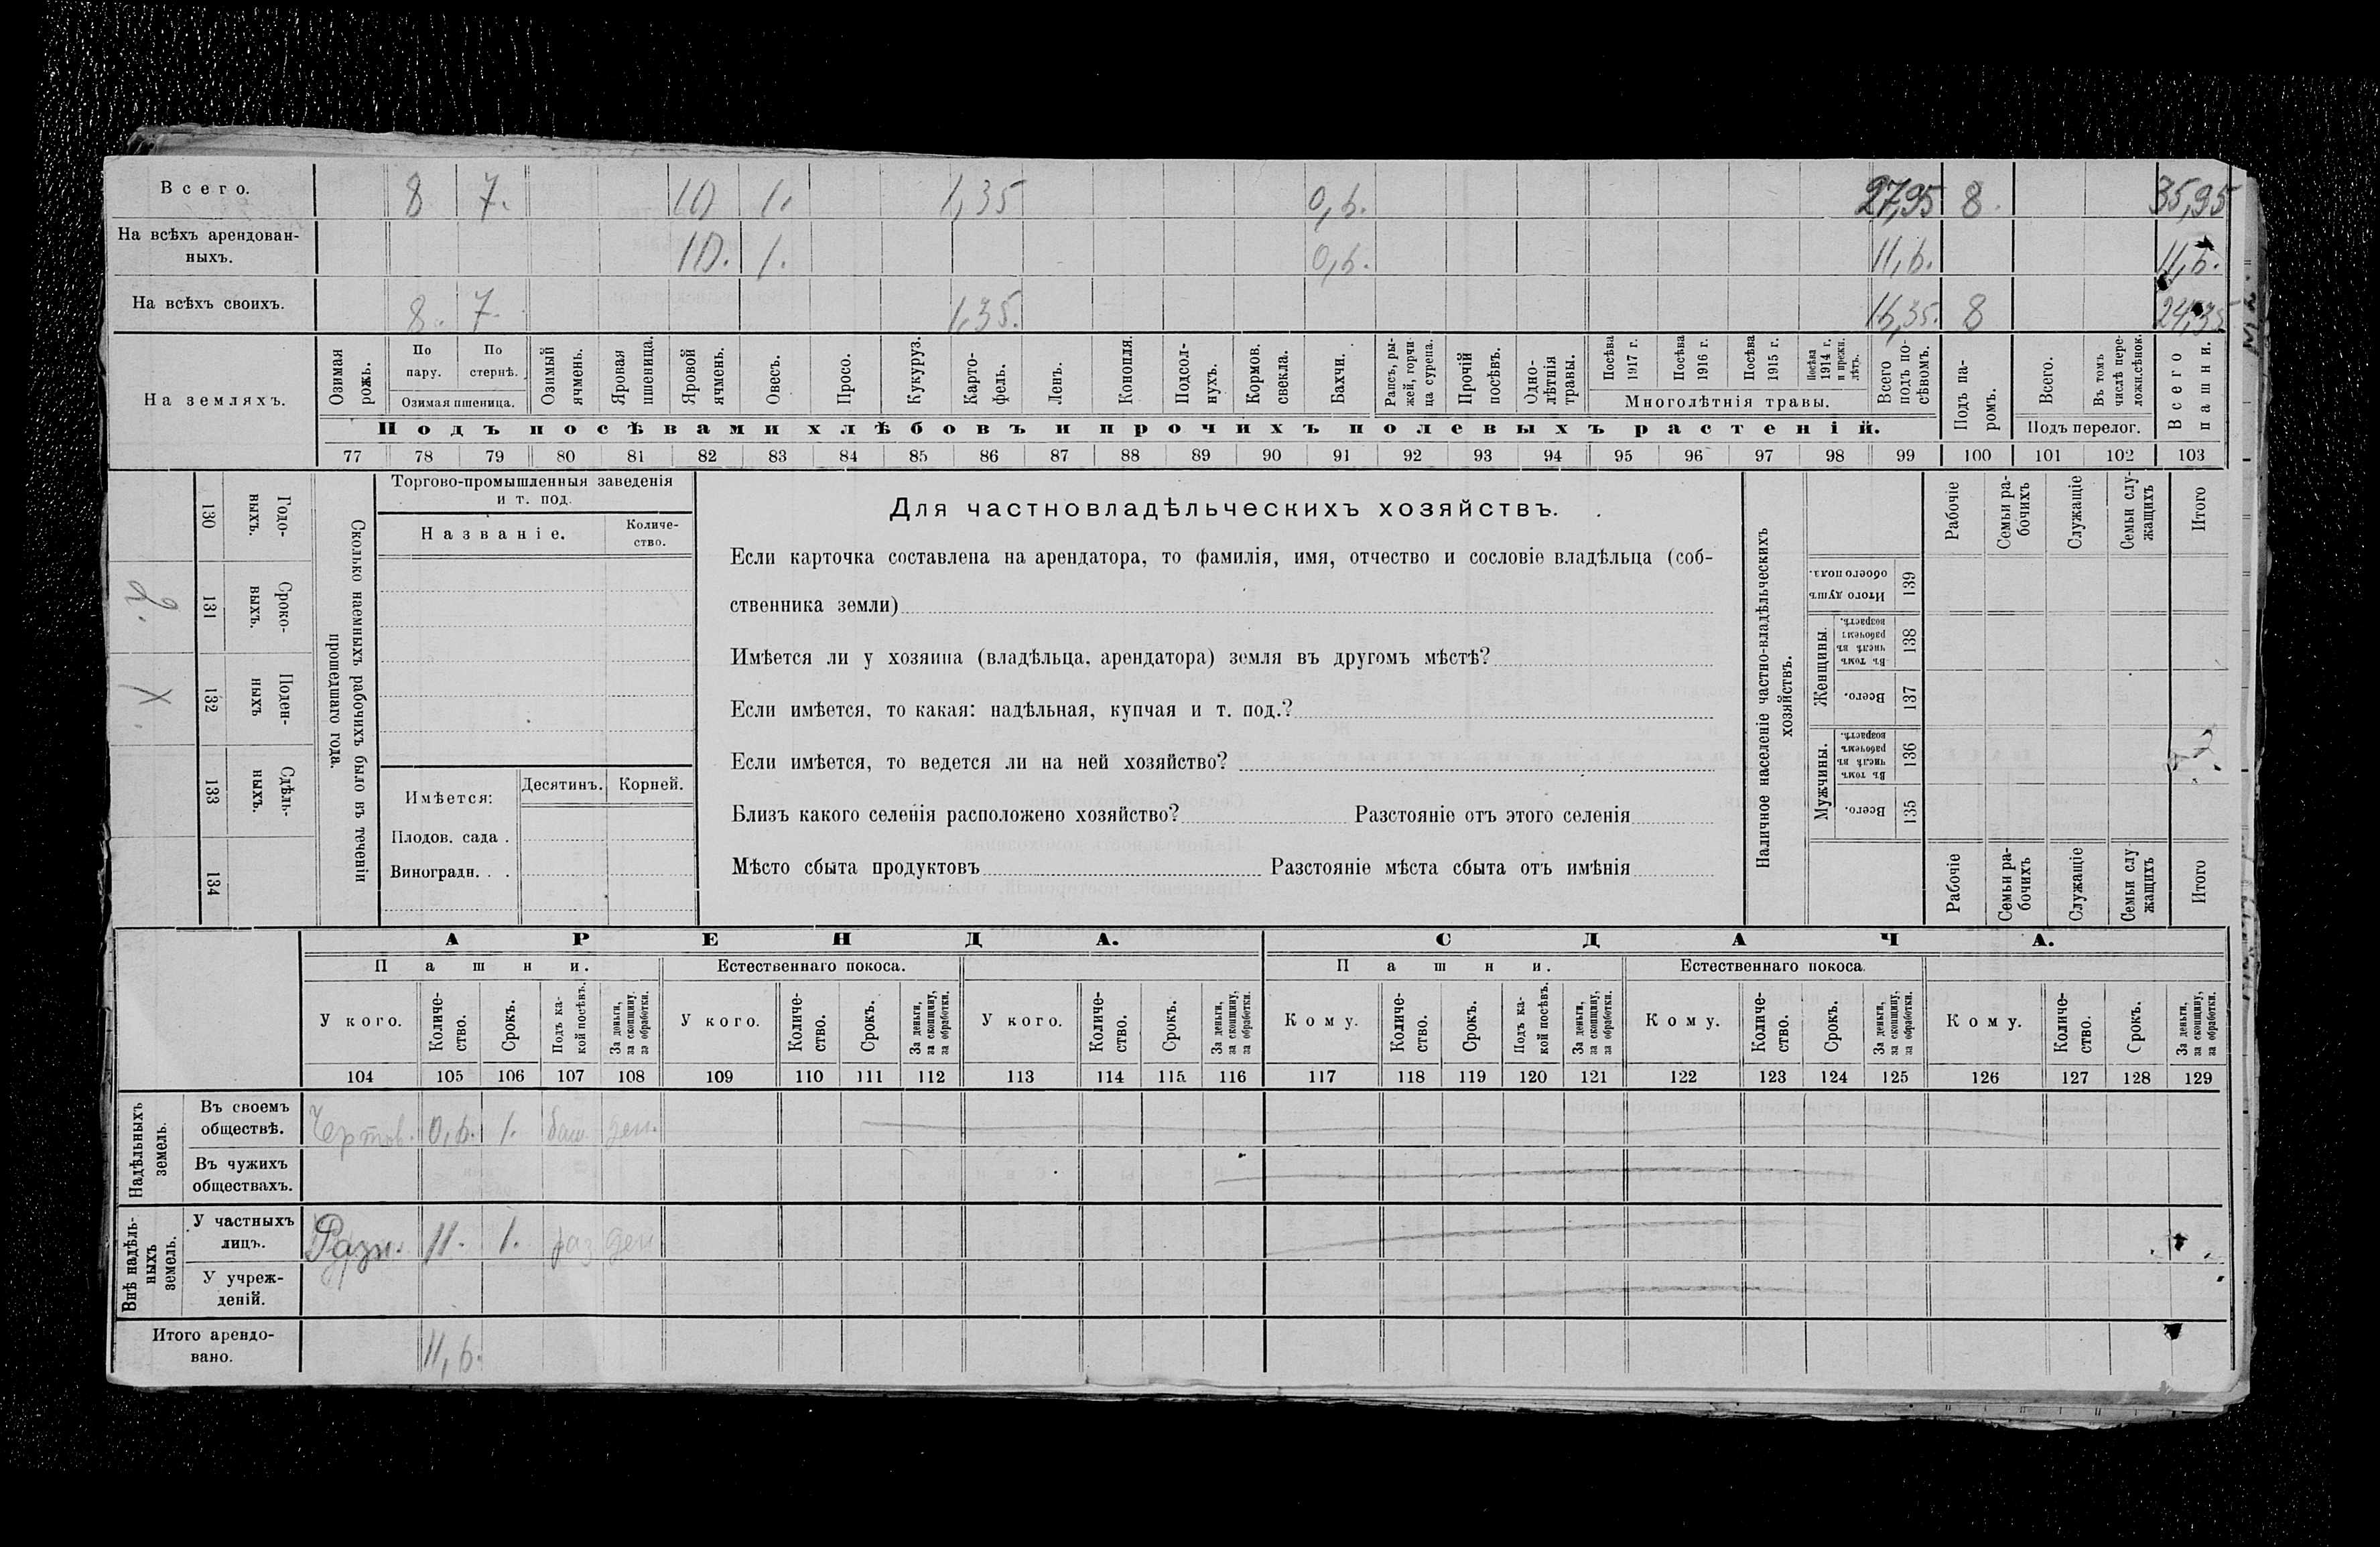 Всего. 8 7. 10 1. 1,35 0,6. 27,95 8. 35,95
На всѣхъ арендован-
ныхъ. 10. 1. 0,6. 11,6. 11,6.
На всѣхъ своихъ. 8. 7. 1,35. 16,35. 8 24,35
На земляхъ.
Озимая рожь.
По пару.
По стернѣ.
Озимая пшеница.
Озимый ячмень.
Яровая пшеница.
Яровой ячмень.
Овесъ.
Просо.
Кукуруз.
Карто-
фель.
Ленъ.
Конопля.
Подсол-
нухъ.
Кормов. свекла.
Бахчи.
Рапсъ, ры-
жей, горчи-
ца сурепа.
Прочій посѣвъ.
Одно-
лѣтнія травы.
Посѣва 1917 г.
Посѣва 1916 г.
Посѣва 1915 г.
Посѣва 1914 г. и прежн. лѣтъ.
Многолѣтнія травы.
Всего подъ по-
сѣвомъ.
Подъ па-
ромъ.
Всего.
Въ томъ числѣ пере-
ложн.сѣнок.
Подъ перелог.
Всего пашни.
Подъ посѣвами хлѣбовъ и прочихъ полевыхъ растеній.
77 78 79 80 81 82 83 84 85 86 87 88 89 90 91 92 93 94 95 96 97 98 99 100 101 102 103
130 Годо-
ныхъ.
131 Сроко-
выхъ.
132 Поден-
ныхъ
133 Сдѣль-
ныхъ.
134
Сколько наемныхъ рабочихъ было въ теченіи
прошедшаго года.
Торгово-промышленныя заведенія
и т. под.
Названіе.
Количе-
ство.
Имѣется:
Десятинъ.
Корней.
Плодов. сада .
Виноградн. . .
Для частновладѣльческихъ хозяйствъ.
Если карточка составлена на арендатора, то фамилія, имя, отчество и сословіе владѣльца (соб-
ственника земли)
Имѣется ли у хозяина (владѣльца, арендатора) земля въ другомъ мѣстѣ?
Если имѣется, то какая: надѣльная, купчая и т. под.?
Если имѣется, то ведется ли на ней хозяйство?
Близъ какого селенія расположено хозяйство? Разстояніе отъ этого селенія
Мѣсто сбыта продуктовъ Разстояніе мѣста сбыта отъ имѣнія
Наличное населеніе частно-владѣльческихъ
хозяйствъ.
Рабочіе
Семьи ра-
бочихъ
Служащіе
Семьи слу-
жащихъ
Итого
Итого душъ обоего пола. 139
Женщины.
Въ томъ числѣ въ рабочемъ возрастѣ. 138
Всего. 137
Мужчины.
Въ томъ числѣ въ рабочемъ возрастѣ. 136
Всего. 135
Рабочіе
Семьи ра-
бочихъ
Служащіе
Семьи слу
жащихъ
Итого
АРЕНДА. СДАЧА.
Пашни. Естественнаго покоса. Пашни. Естественнаго покоса.
У кого.
Количе-
ство.
Срокъ.
Подъ ка-
кой посѣвъ.
За деньги, за скопщину, за обработки.
У кого.
Количе-
ство.
Срокъ.
За деньги, за скопщину, за обработки.
У кого.
Количе-
ство.
Срокъ.
За деньги, за скопщину, за обработки.
Кому.
Количе-
ство.
Срокъ.
Подъ ка-
кой посѣвъ.
За деньги, за скопщину, за обработки.
Кому.
Количе-
ство.
Срокъ.
За деньги, за скопщину, за обработки.
Кому.
Количе-
ство.
Срокъ.
За деньги, за скопщину, за обработки.
104 105 106 107 108 109 110 111 112 113 114 115 116 117 118 119 120 121 122 123 124 125 126 127 128 129
Надѣльныхъ
земель.
Въ своемъ
обществѣ. 0,6. 1. ден.
Въ чужихъ
обществахъ.
Внѣ надѣль-
ныхъ
земель.
У частныхъ
лицъ. Разн. 11. 1. раз ден
У учреж-
деній.
Итого арендо-
вано. 11,6.